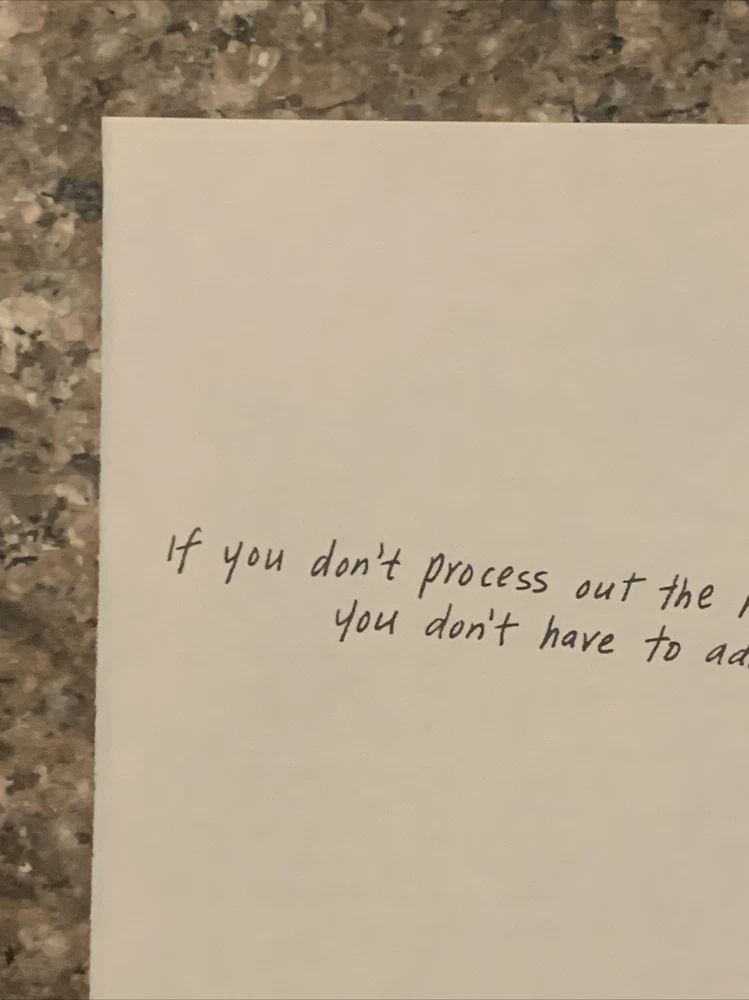 If you don't process out the
you don't have to